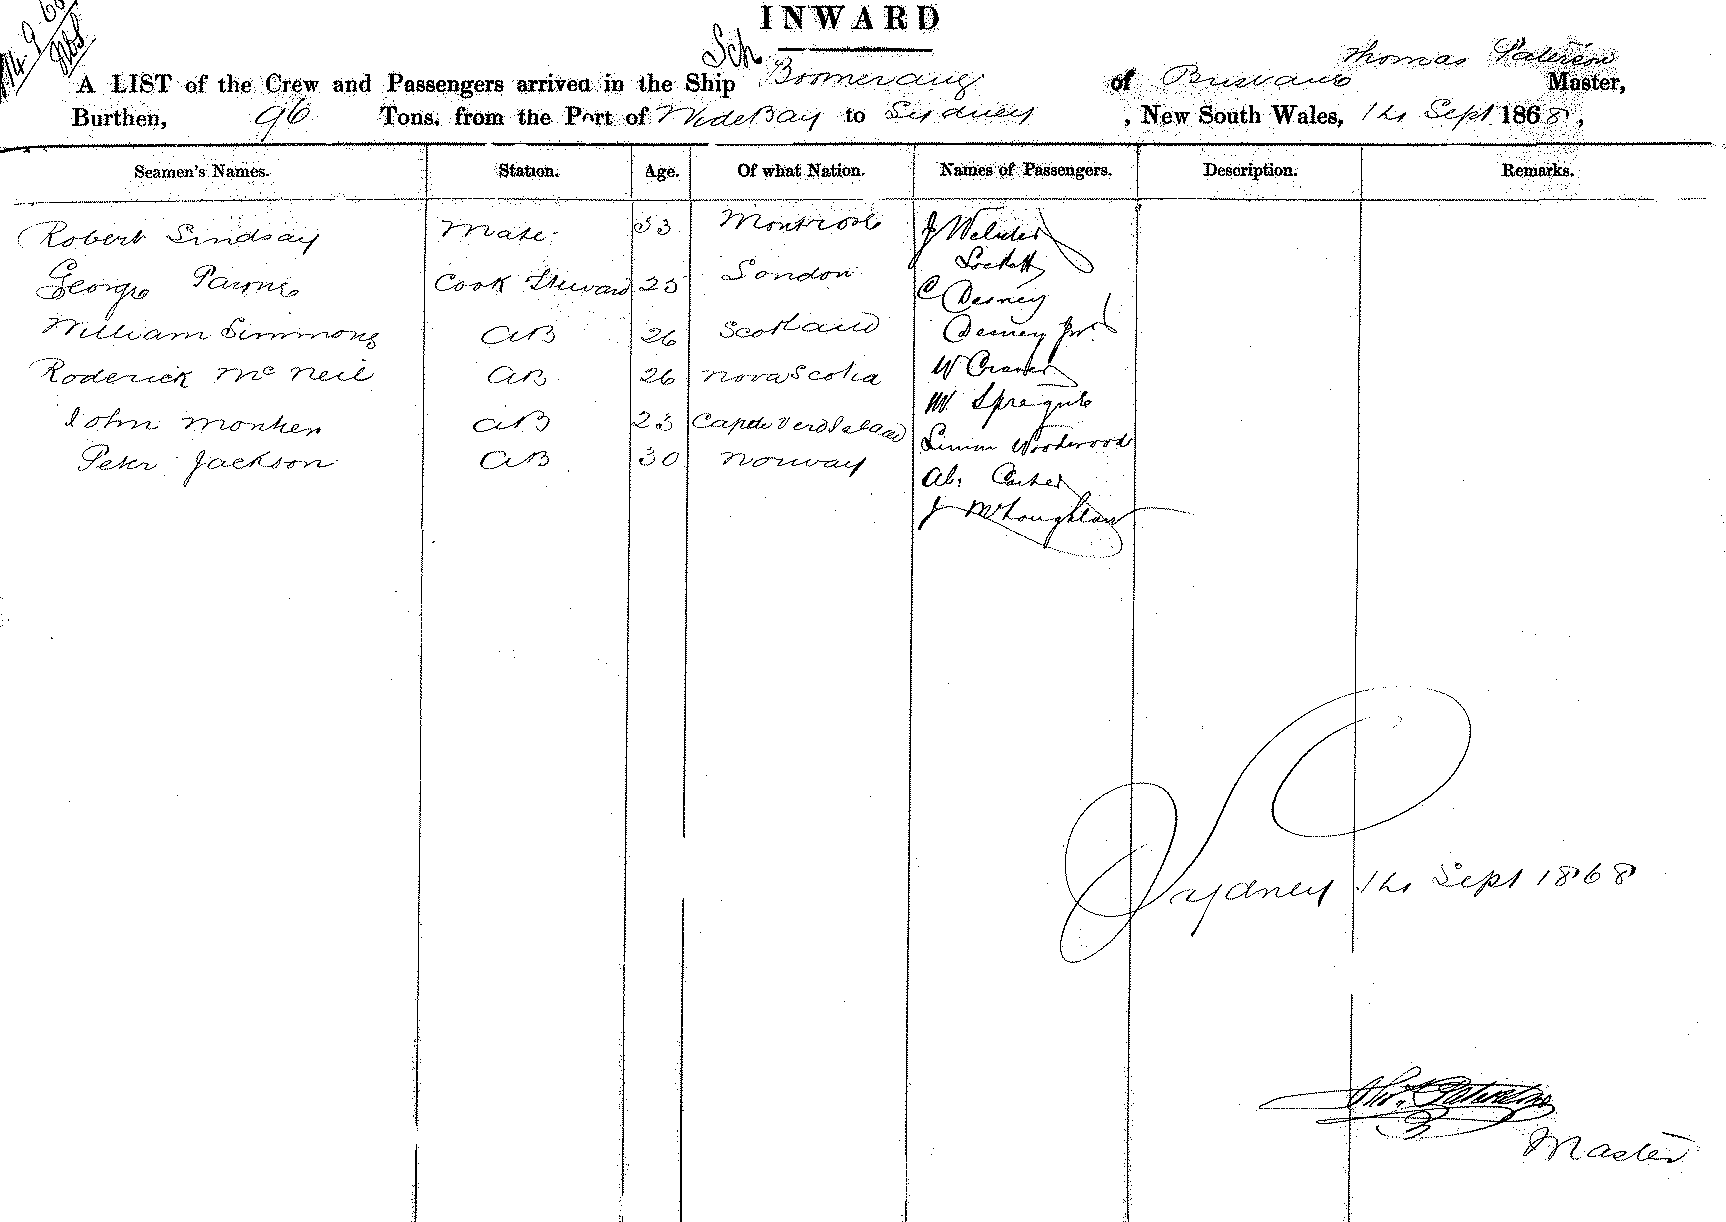 14.9.68
INWARD
Sch
Thomas Paterson
A LIST of the Crew and Passengers arrived in the Ship Boomerang of Brisbane Master,
Burthen, 96 Tons, from the Port of Wide Bay to Sydney , New South Wales, Sept 1868,
Seamen's Names. Station. Age. Of what Nation. Names of Passengers. Description. Remarks.
Robert Lindsay Mate 33 Montrose J Webster
Lockett
George Payne Cook Steward 25 London C Desney
William Simmons AB 26 Scotland Desney Jnr.
Roderick McNeil AB 26 Nova Scotia W
W Sprague
John AB 23 Cape Verd Island Simon Woodwood
Peter Jackson AB 30 Norway Carter
J McLoughlan
Sydney Sept 1868
Thos. Paterson
Master